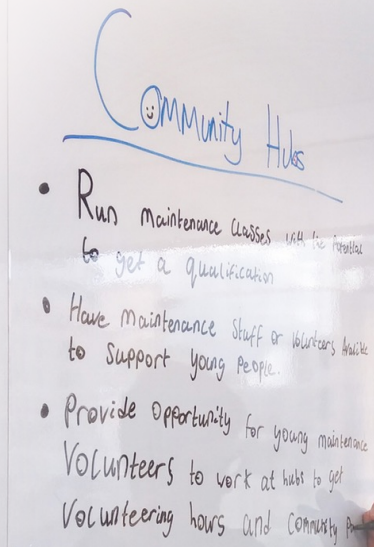 Community Hubs
• Run maintenance classes with the Potential
to get a qualification
• Have maintenance Staff or Volunteers Available
to support young People.
• Provide Opportunity for young maintenance
Volunteers to work at hubs to get
Volunteering hours and Community